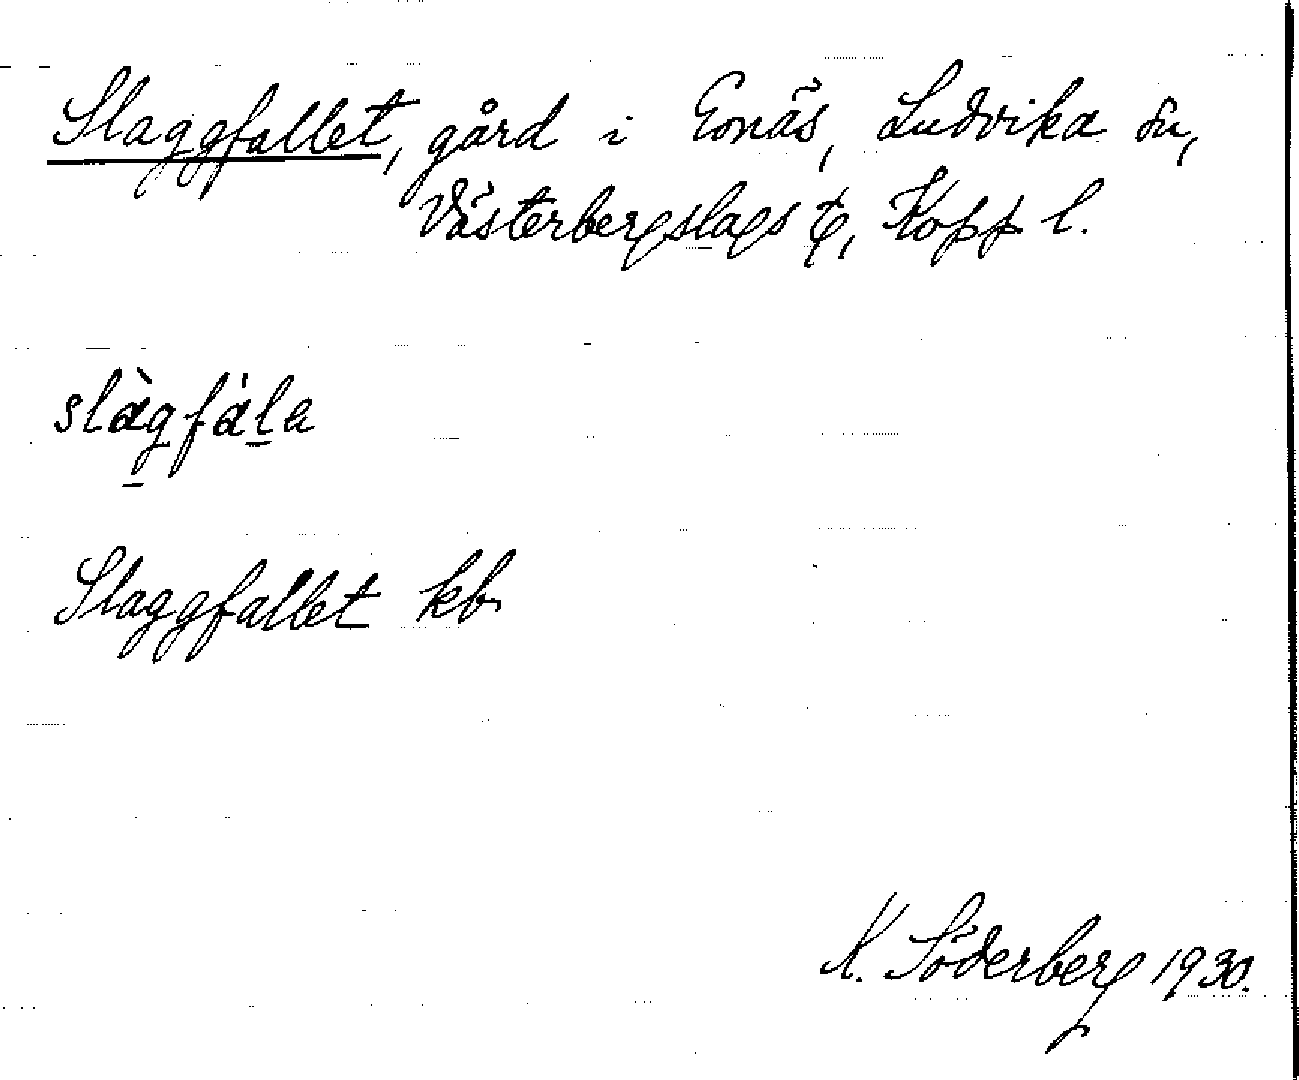 Slaggfallet, gård i Gonäs, Ludvika sn,
Västerbergslags tg, Kopp l.
slàg̲fál̲a
Slaggfallet kb.
K. Söderberg 1930.